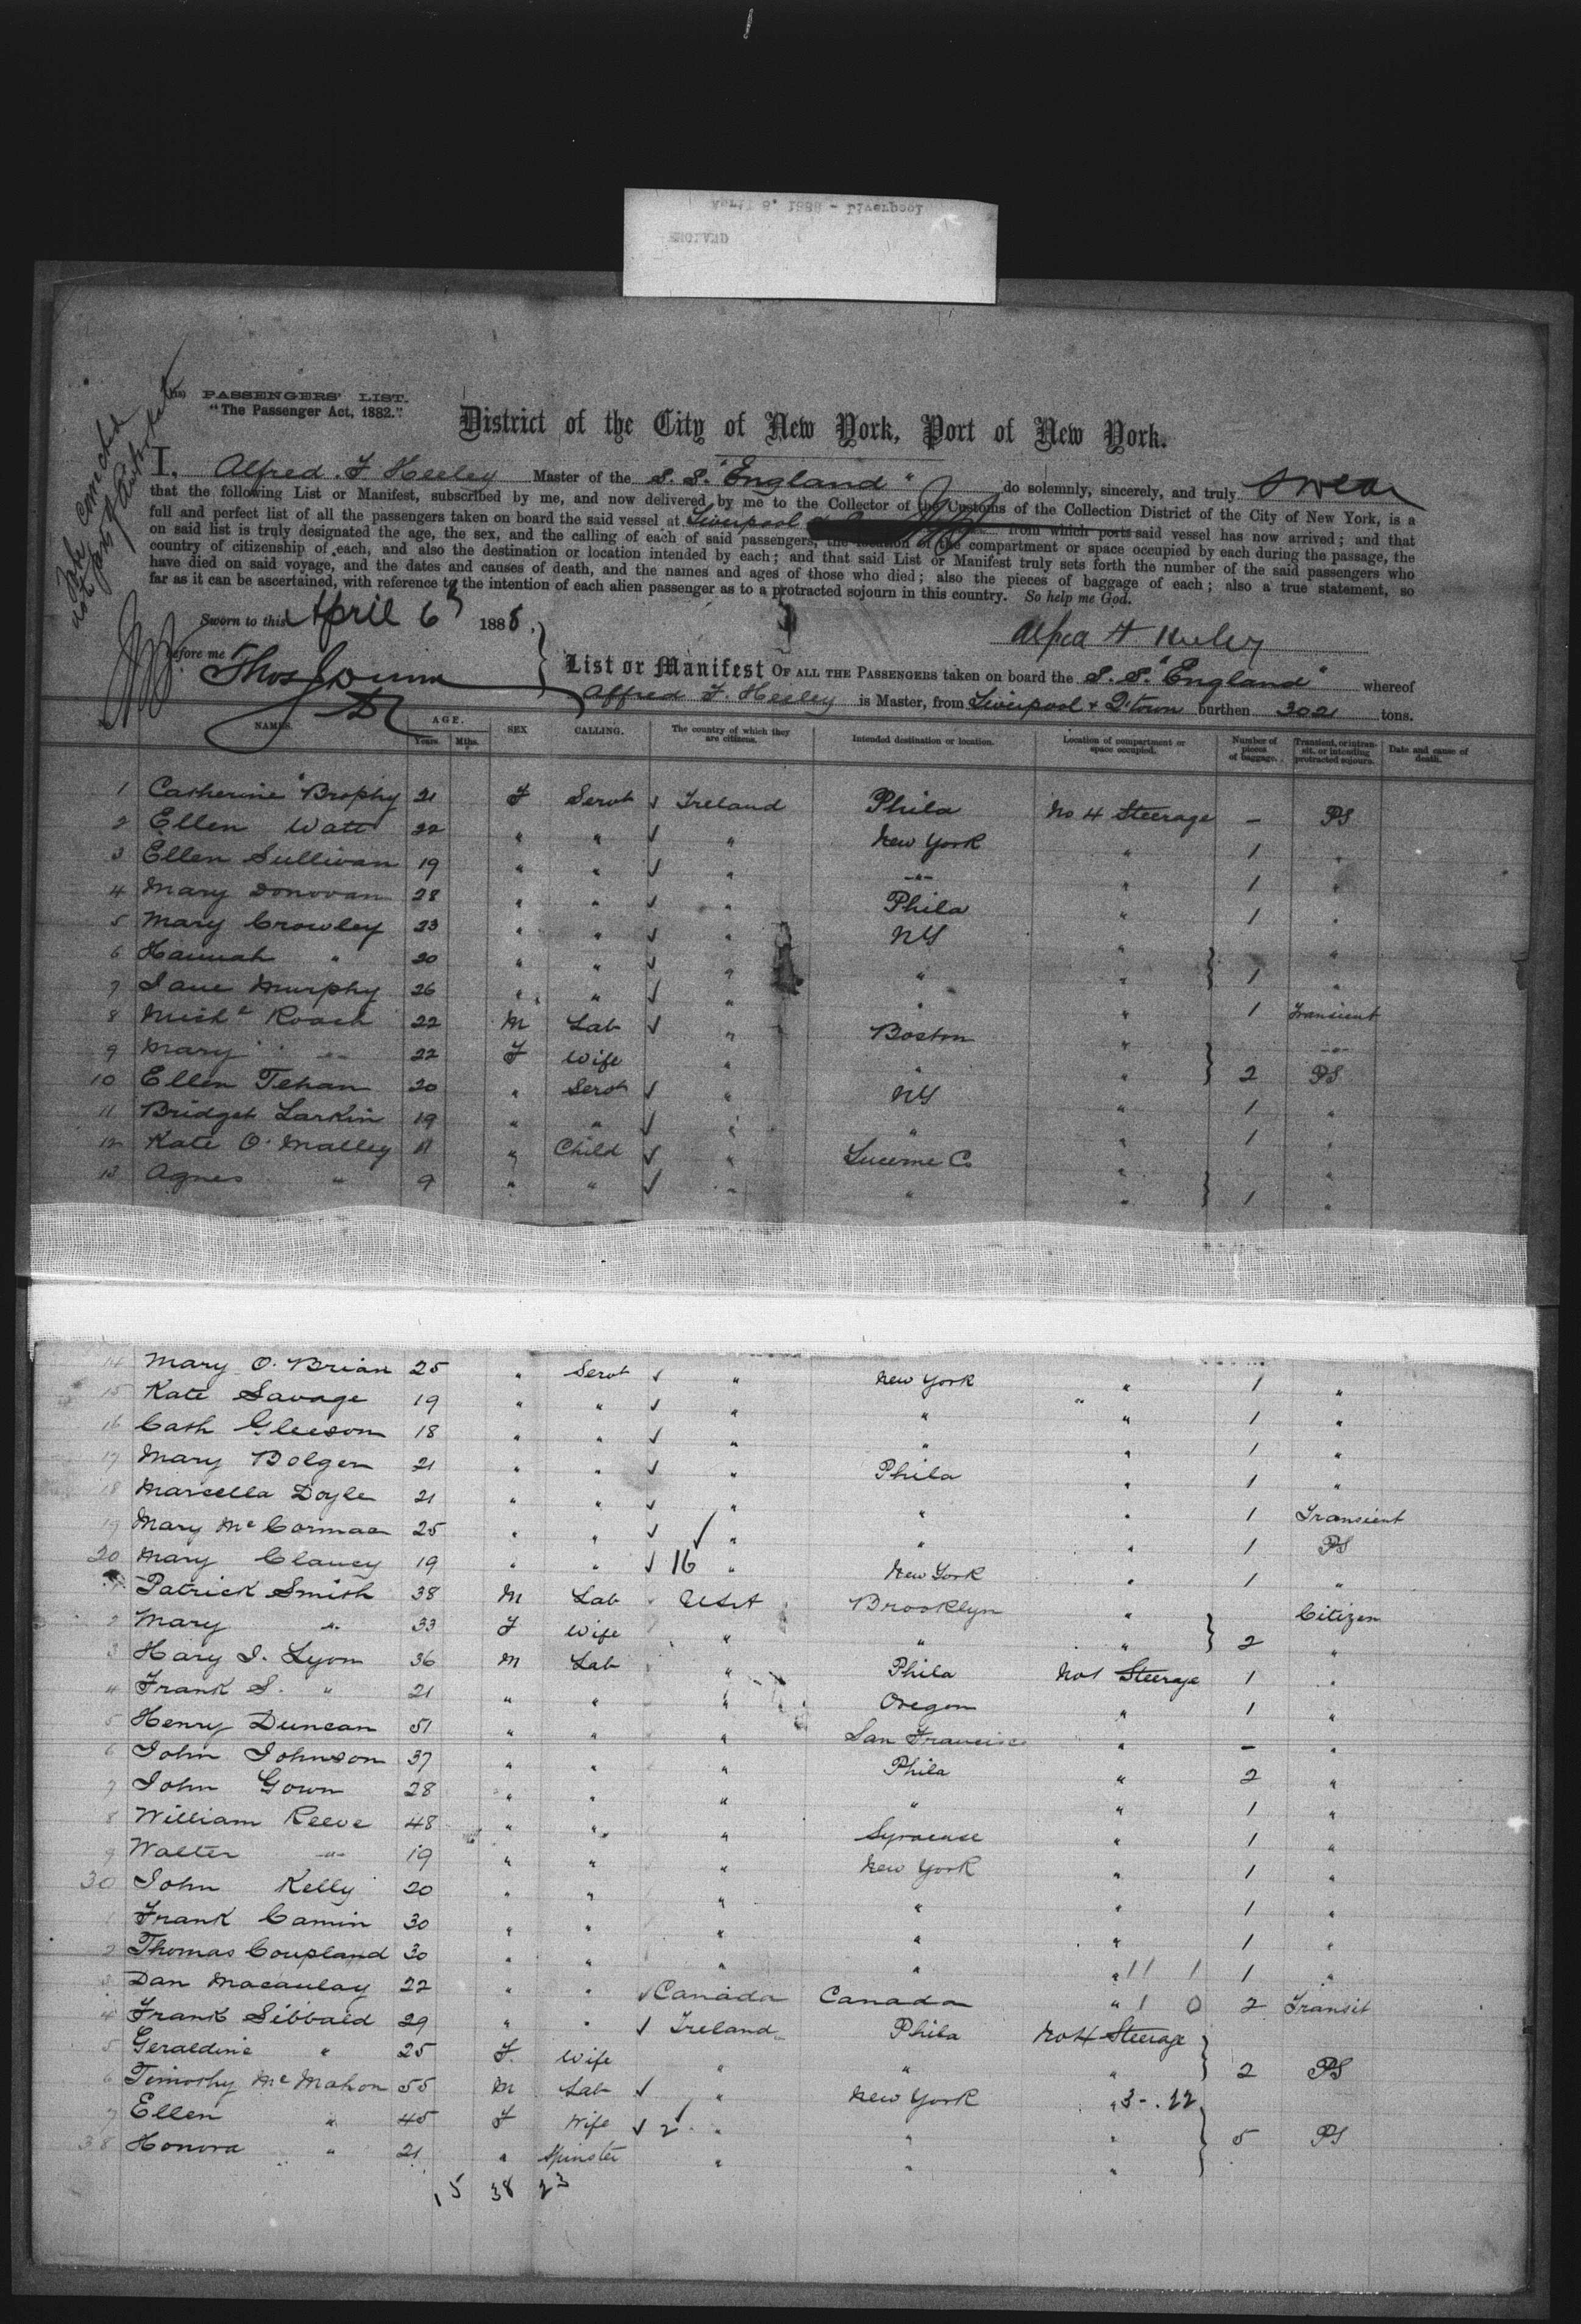 PASSENGERS' LIST.
"The Passenger Act, 1882."
District of the City of New York, Port of New York.
I, Alfred. F Heeley Master of the S. S. "England" do solemnly, sincerely, and truly swear
that the following List or Manifest, subscribed by me, and now delivered by me to the Collector of the Customs of the Collection District of the City of New York, is a
full and perfect list of all the passengers taken on board the said vessel at Liverpool from which ports said vessel has now arrived; and that
on said list is truly designated the age, the sex, and the calling of each of said passengers, the location of the compartment or space occupied by each during the passage, the
country of citizenship of each, and also the destination or location intended by each; and that said List or Manifest truly sets forth the number of the said passengers who
have died on said voyage, and the dates and causes of death, and the names and ages of those who died; also the pieces of baggage of each; also a true statement, so
far as it can be ascertained, with reference to the intention of each alien passenger as to a protracted sojourn in this country. So help me God.
Sworn to this April 6 1888.
before me
List or Manifest OF ALL THE PASSENGERS taken on board the S. S. "England" whereof
Alfred F. Heeley is Master, from Liverpool & Q'town burthen 3021 tons.
NAMES. AGE. Years. Mths. SEX CALLING. The country of which they are citizens. Intended destination or location. Location of compartment or space occupied. Number of pieces of baggage. Transient, or in transit, or intending protracted sojourn. Date and cause of death.
1 Catherine Brophy 21 F Servt ✓ Ireland Phila No 4 Steerage – PS
2 Ellen Watt 22 " " ✓ " New York " 1 "
3 Ellen Sullivan 19 " " ✓ " -"- " 1 "
4 Mary Donovan 28 " " ✓ " Phila " 1 "
5 Mary Crowley 23 " " ✓ " NY " "
6 Hannah " 20 " " ✓ " " " 1 "
7 Jane Murphy 26 " " ✓ " " " 1 Transient
8 Michl Roach 22 M Lab ✓ " Boston " -"-
9 Mary -"- 22 F Wife " " " 2 PS
10 Ellen Tehan 20 " Servt ✓ " NY " 1 "
11 Bridget Larkin 19 " " ✓ " " " 1 "
12 Kate O'Malley 11 " Child ✓ " Lucerne Co " "
13 Agnes " 9 " " ✓ " " " 1 "
14 Mary O'Brian 25 " Servt ✓ " New York " 1 "
15 Kate Savage 19 " " ✓ " " " 1 "
16 Cath Gleeson 18 " " ✓ " " " 1 "
17 Mary Bolger 21 " " ✓ " Phila " 1 "
18 Marcella Doyle 21 " " ✓ " " " 1 Transient
19 Mary McCormac 25 " " ✓ " " " 1 PS
20 Mary Clancy 19 " " ✓ 16 " New York " 1 "
1 Patrick Smith 38 M Lab USA Brooklyn " Citizen
2 Mary " 33 F Wife " " " 2 "
3 Hary J. Lyon 36 M Lab " Phila No 1 Steerage 1 "
4 Frank S. " 21 " " " Oregon " 1 "
5 Henry Duncan 51 " " " San Francisco " – "
6 John Johnson 37 " " " Phila " 2 "
7 John Gown 28 " " " " " 1 "
8 William Reeve 48 " " " Syracuse " 1 "
9 Walter -"- 19 " " " New York " 1 "
30 John Kelly 20 " " " " " 1 "
1 Frank Camin 30 " " " " " 1 "
2 Thomas Coupland 30 " " " " " 11 1 1 "
3 Dan Macaulay 22 " " ✓ Canada Canada " 1 0 2 Transit
4 Frank Sibbald 29 " " ✓ Ireland Phila No 4 Steerage
5 Geraldine " 25 F. Wife " " " 2 PS
6 Timothy McMahon 55 M Lab ✓ " New York " 3-.22
7 Ellen " 45 F Wife ✓ 2 " " " 5 PS
38 Honora " 21 " Spinster " " "
15 38 23